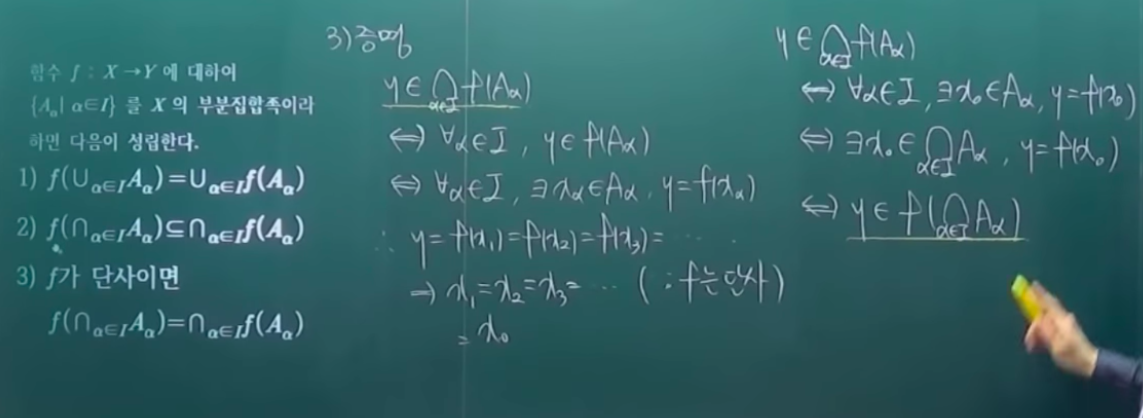 함수 f : X→Y 에 대하여
{Aα| α∈I} 를 X 의 부분집합족이라
하면 다음이 성립한다.
1) f(∪α∈I Aα)=∪α∈I f(Aα)
2) f(∩α∈I Aα)⊆∩α∈I f(Aα)
3) f가 단사이면
f(∩α∈I Aα)=∩α∈I f(Aα)
3) 증명
y∈⋂α∈I f(Aα)
⇔ ∀α∈I, y∈f(Aα)
⇔ ∀α∈I, ∃xα∈Aα, y=f(xα)
∴ y=f(x₁)=f(x₂)=f(x₃)=⋯⋯
⇒ x₁=x₂=x₃=⋯ (∵f는 단사)
= x₀
y∈⋂α∈I f(Aα)
⇔ ∀α∈I, ∃x₀∈Aα, y=f(x₀)
⇔ ∃x₀∈⋂α∈I Aα, y=f(x₀)
⇔ y∈f(⋂α∈I Aα)